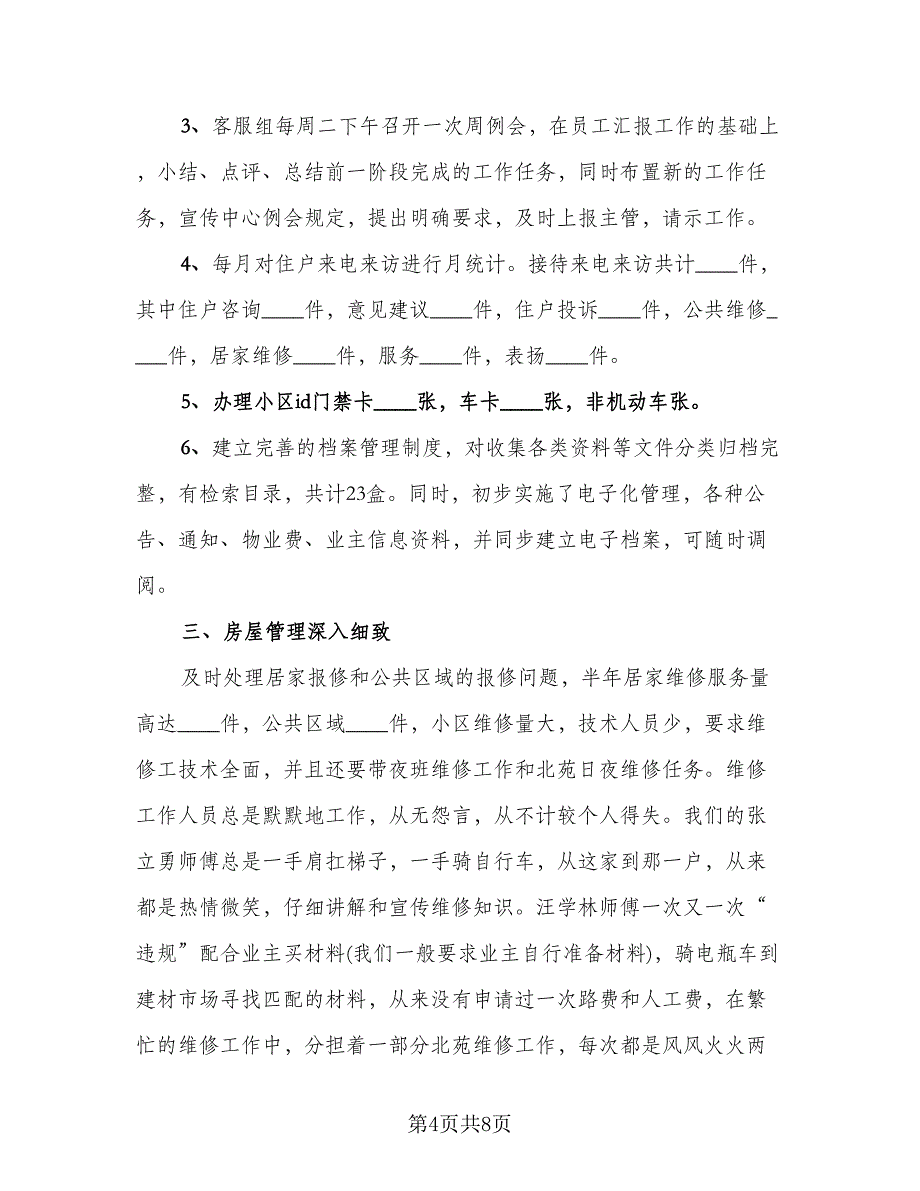 3、客服组每周二下午召开一次周例会，在员工汇报工作的基础上
，小结、点评、总结前一阶段完成的工作任务，同时布置新的工作任
务，宣传中心例会规定，提出明确要求，及时上报主管，请示工作。
4、每月对住户来电来访进行月统计。接待来电来访共计____件，
其中住户咨询____件，意见建议____件，住户投诉____件，公共维修_
___件，居家维修____件，服务____件，表扬____件。
5、办理小区id门禁卡____张，车卡____张，非机动车张。
6、建立完善的档案管理制度，对收集各类资料等文件分类归档完
整，有检索目录，共计23盒。同时，初步实施了电子化管理，各种公
告、通知、物业费、业主信息资料，并同步建立电子档案，可随时调
阅。
三、房屋管理深入细致
及时处理居家报修和公共区域的报修问题，半年居家维修服务量
高达____件，公共区域____件，小区维修量大，技术人员少，要求维
修工技术全面，并且还要带夜班维修工作和北苑日夜维修任务。维修
工作人员总是默默地工作，从无怨言，从不计较个人得失。我们的张
立勇师傅总是一手肩扛梯子，一手骑自行车，从这家到那一户，从来
都是热情微笑，仔细讲解和宣传维修知识。汪学林师傅一次又一次“
违规”配合业主买材料(我们一般要求业主自行准备材料)，骑电瓶车到
建材市场寻找匹配的材料，从来没有申请过一次路费和人工费，在繁
忙的维修工作中，分担着一部分北苑维修工作，每次都是风风火火两
第4页共8页